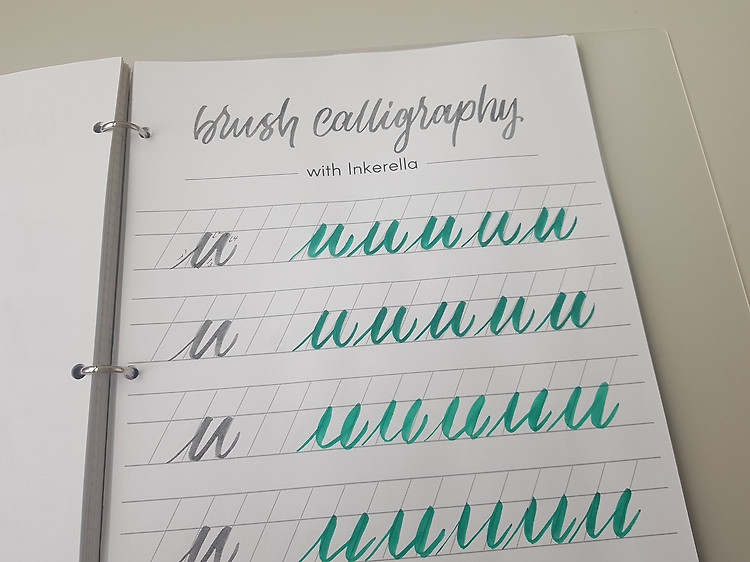 brush calligraphy
with Inkerella
u uuuuu
u uuuuu
u uuuuu
u uuuuu